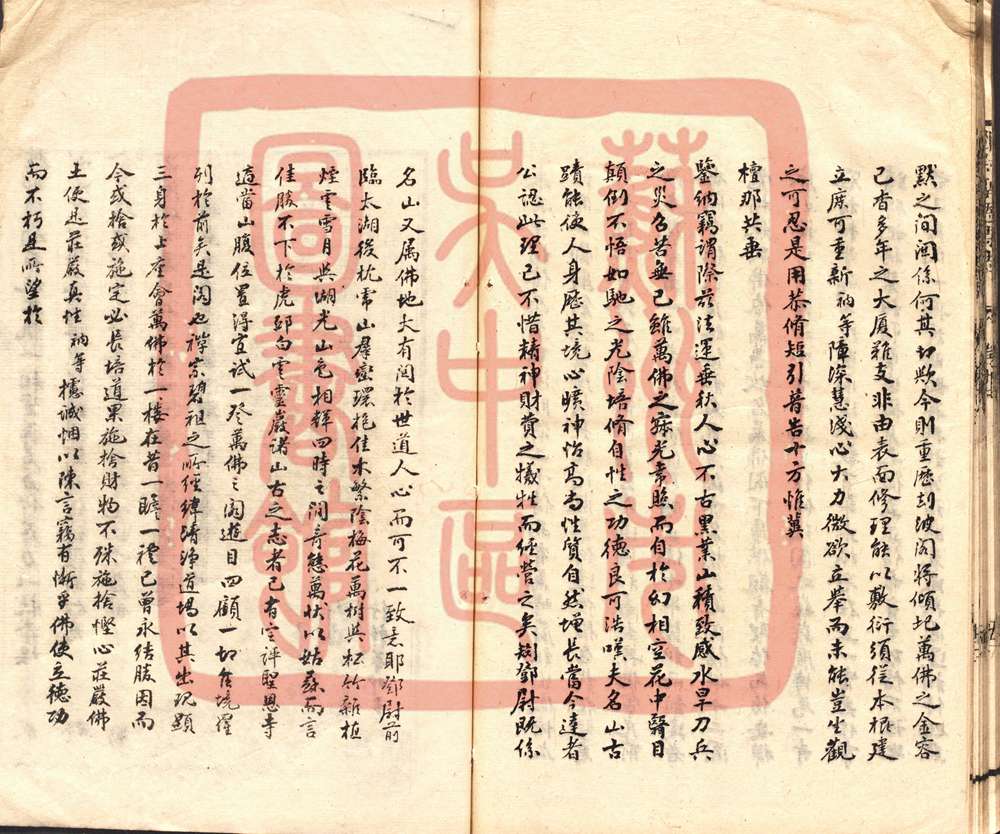 默之间関係何其切欤今則重歷刧波閣將傾圮萬佛之金容
已杳多年之大厦難支非由表面修理能以敷衍須從本根建
立庶可重新衲等障深慧淺心大力微欲立舉而未能豈坐觀
之可忍是用恭脩短引普告十方惟冀
檀那共垂
鑒納竊謂際茲法運垂秋人心不古黑業山積致感水旱刀兵
之災名苦無已雖萬佛之寂光常照而自於幻相空花中翳目
顛倒不悟如馳之光陰培脩自性之功德良可浩嘆夫名山古
蹟能使人身歷其境心曠神怡高尚性質自然增長當今達者
公認此理已不惜精神財費之犧牲而經營之矣矧鄧尉既係
名山又属佛地大有関於世道人心而可不一致意耶鄧尉前
臨太湖後枕常山羣巒環抱佳木繁陰梅花萬樹與松竹雜植
烟雲雪月與湖光山色相輝四時之間奇態萬狀以姑蘇而言
佳勝不下於虎邱白雲靈巖諸山古之志者已有定評聖恩寺
適當山腹位置得宜試一登萬佛之閣遊目四顧一切佳境羅
列於前矣是閣也禪宗碧祖之所經緯清淨道場以其出現顯
三身於上座會萬佛於一楼在昔一瞻一禮已曾永结勝因而
今或捨或施定必長培道果施捨財物不殊施捨慳心莊嚴佛
土便是莊嚴真性衲等攄誠悃以陳言竊有慚乎佛使立德功
而不朽是所望於
蘇州市
吴中區
圖書館